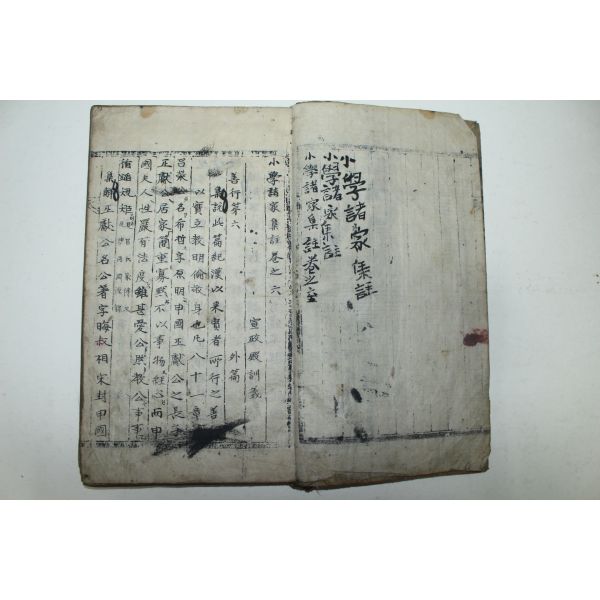 小學諸家集註
小學諸家集註
小學諸家集註卷之六
小學諸家集註卷之六
宣政殿訓義
善行第六
外篇
集說此篇紀漢以來賢者所行之善
以實立教明倫敬身也凡八十一章
呂滎公名希哲字原明申國正獻公之長子
正獻公居家簡重寡默不以事物經心而申
國夫人性嚴有法度雖甚愛公然教公事事
循蹈規矩
集解正獻公名公著字晦叔相宋封申國